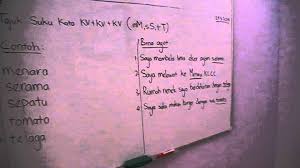 Tajuk: Suku Kata KV+KV+KV (m,s,t)
Contoh:
menara
senama
sepatu
tomato
telaga
Bina ayat
1. Saya membeli lima ekor ayam
2. Saya melawat ke Menara KLCC.
3. Rumah nenek saya berdekatan dengan telaga
4. Saya suka makan burger dengan sos tomato.